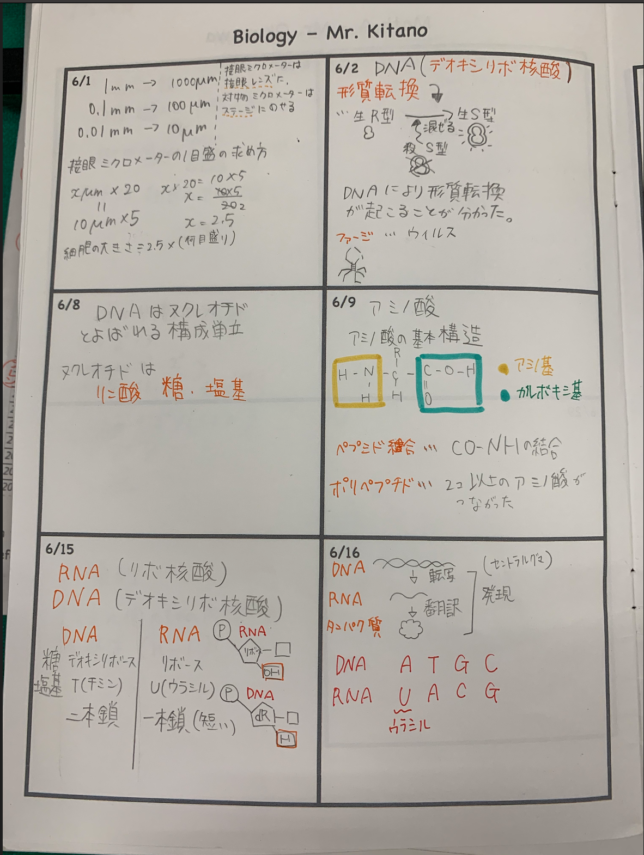 Biology - Mr. Kitano
6/1
1mm → 1000μm
0.1mm → 100μm
0.01mm → 10μm
接眼ミクロメーターは
接眼レンズに、
対物ミクロメーターは
ステージにのせる
接眼ミクロメーターの1目盛の求め方
xμm × 20
11
10μm×5
x×20=10×5
x= 10×5
20 2
x=2.5
細胞の大きさ=2.5×(何目盛り)
6/2 DNA(デオキシリボ核酸)
形質転換
生R型 → 生S型
混ぜる
殺S型
DNAにより形質転換
が起こることが分かった。
ファージ … ウィルス
6/8
DNAはヌクレオチド
とよばれる構成単立
ヌクレオチドは
リン酸 糖、塩基
6/9 アミノ酸
アミノ酸の基本構造
R
H-N-C-C-O-H
H H O
アミノ基
カルボキシ基
ペプシド結合… CO-NHの結合
ポリペプチド… 2コ以上のアミノ酸が
つながった
6/15
RNA (リボ核酸)
DNA (デオキシリボ核酸)
DNA RNA
糖 デオキシリボース リボース
塩基 T(チミン) U(ウラシル)
二本鎖 一本鎖(短い)
P RNA
リボ
OH
P DNA
dR
H
6/16
DNA
転写
(セントラルグマ)
RNA
翻訳
発現
タンパク質
DNA A T G C
RNA U A C G
ウラシル